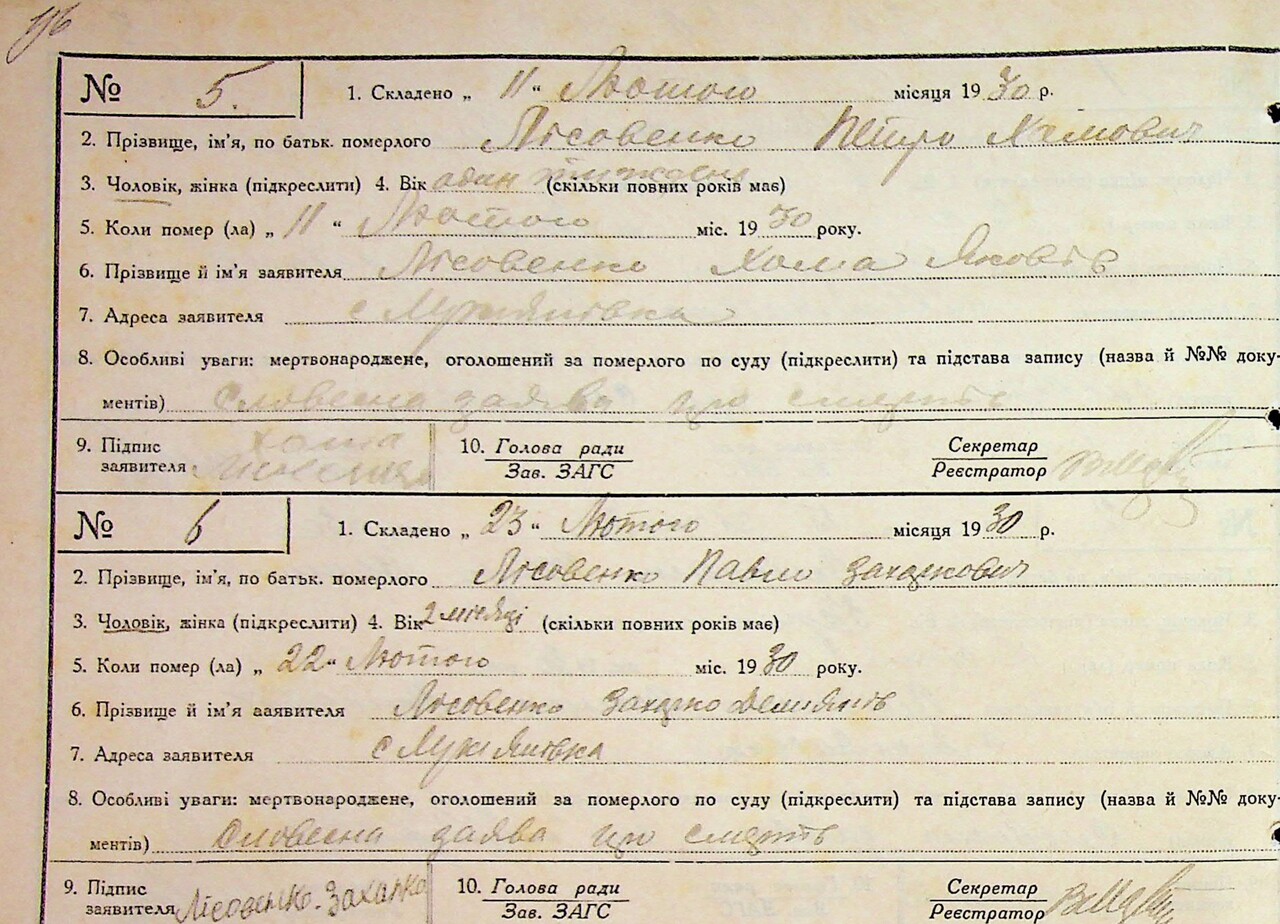 № 5. 1. Складено „ 11 “ Лютого місяця 1930 р.
2. Прізвище, ім'я, по батьк. померлого Лісовенко Петро Хомович
3. Чоловік, жінка (підкреслити) 4. Вік один тиждень (скільки повних років має)
5. Коли помер (ла) „ 11 “ Лютого міс. 1930 року.
6. Прізвище й ім'я заявителя Лісовенко Хома Яковів
7. Адреса заявителя с Лукянівка
8. Особливі уваги: мертвонароджене, оголошений за померлого по суду (підкреслити) та підстава запису (назва й №№ доку-
ментів) Словесна заява про смерть
9. Підпис Хома 10. Голова ради Секретар
заявителя Зав. ЗАГС Реєстратор
№ 6 1. Складено „ 23 “ Лютого місяця 1930 р.
2. Прізвище, ім'я, по батьк. померлого Лісовенко Павло Захаркович
3. Чоловік, жінка (підкреслити) 4. Вік 2 місяці (скільки повних років має)
5. Коли помер (ла) „ 22 “ Лютого міс. 1930 року.
6. Прізвище й ім'я заявителя Лісовенко Захарко Демянів
7. Адреса заявителя с Лукянівка
8. Особливі уваги: мертвонароджене, оголошений за померлого по суду (підкреслити) та підстава запису (назва й №№ доку-
ментів) Словесна заява про смерть
9. Підпис 10. Голова ради Секретар
заявителя Лісовенко. Захарко Зав. ЗАГС Реєстратор